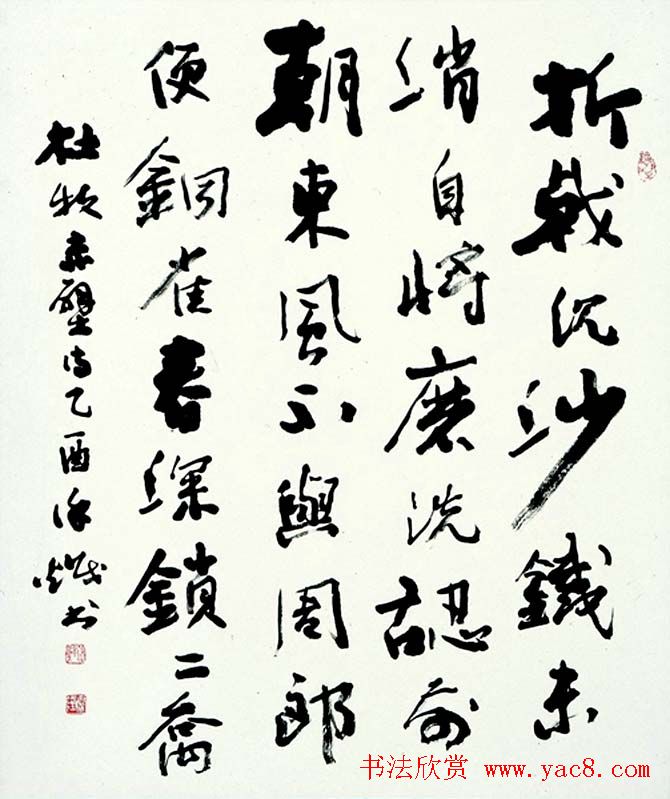 折戟沉沙鐵未
消自將磨洗認前
朝東風不與周郎
便銅雀春深鎖二喬
杜牧赤壁詩乙酉書
书法欣赏 www.yac8.com